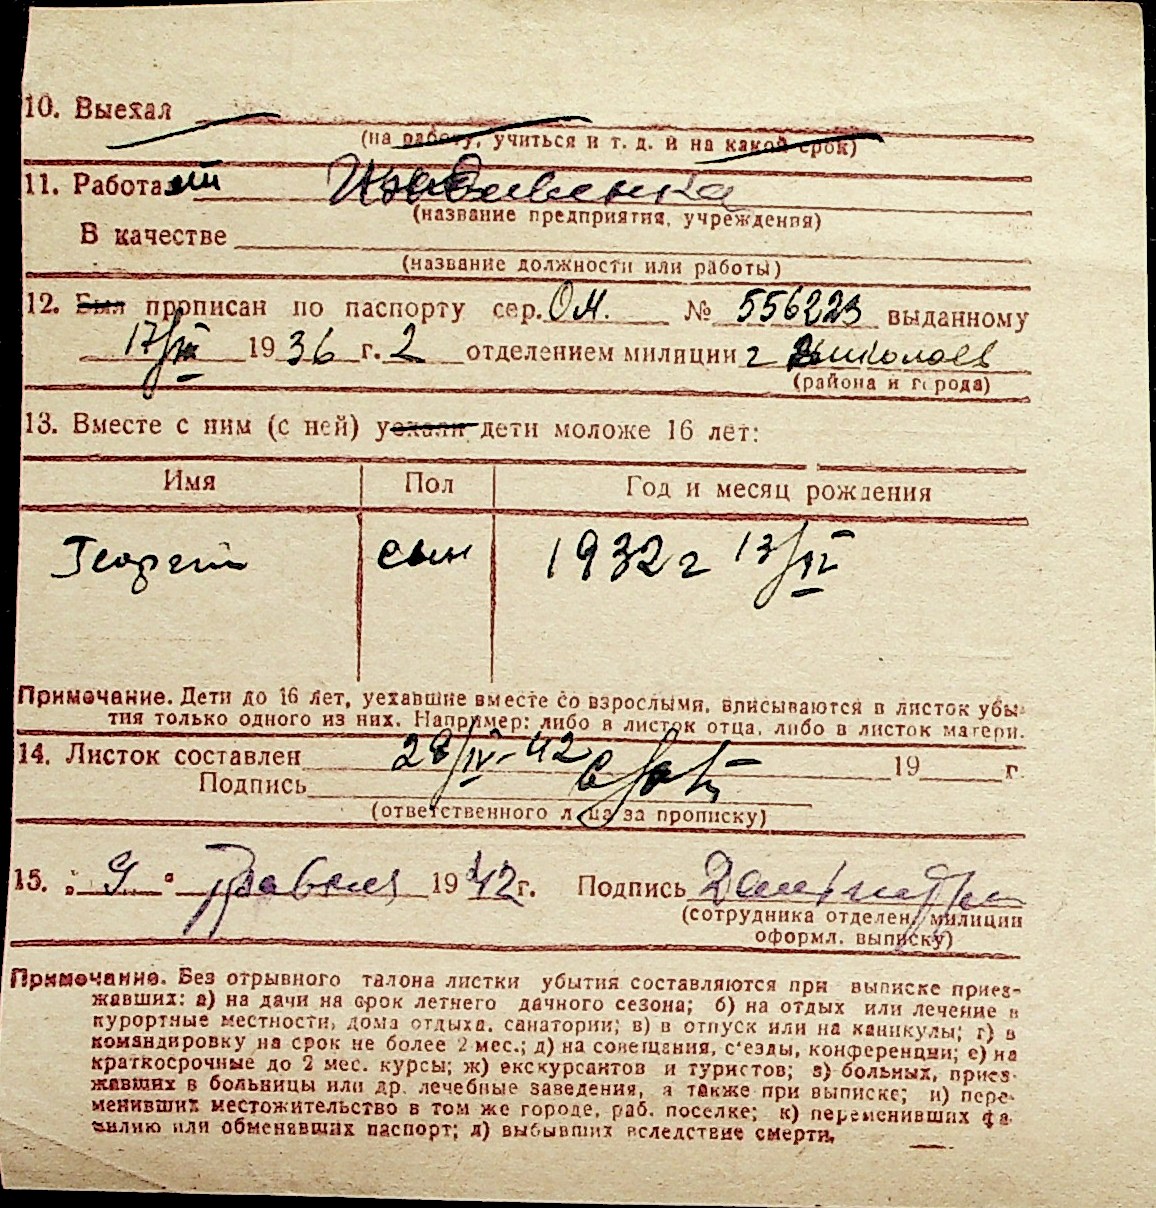 10. Выехал
(на работу, учиться и т. д. и на какой срок)
11. Работает Иждивенка
(название предприятия, учреждения)
В качестве
(название должности или работы)
12. Был прописан по паспорту сер. ОМ. № 556223 выданному
17/III 1936 г. 2 отделением милиции г Николаев
(района и города)
13. Вместе с ним (с ней) уехали дети моложе 16 лет:
Имя Пол Год и месяц рождения
Георгий сын 1932 г 13/IV
Примечание. Дети до 16 лет, уехавшие вместе со взрослыми, вписываются в листок убы-
тия только одного из них. Например: либо в листок отца, либо в листок матери.
14. Листок составлен 28/IV-42 19 г.
Подпись
(ответственного лица за прописку)
15. „ 9 “ 1942 г. Подпись
(сотрудника отделен. милиции
оформл. выписку)
Примечание. Без отрывного талона листки убытия составляются при выписке приез-
жавших: а) на дачи на срок летнего дачного сезона; б) на отдых или лечение в
курортные местности, дома отдыха, санатории; в) в отпуск или на каникулы; г) в
командировку на срок не более 2 мес.; д) на совещания, с'езды, конференции; е) на
краткосрочные до 2 мес. курсы; ж) экскурсантов и туристов; з) больных, приез-
жавших в больницы или др. лечебные заведения, а также при выписке; и) пере-
менивших местожительство в том же городе, раб. поселке; к) переменивших фа-
милию или обменявших паспорт; л) выбывших вследствие смерти.